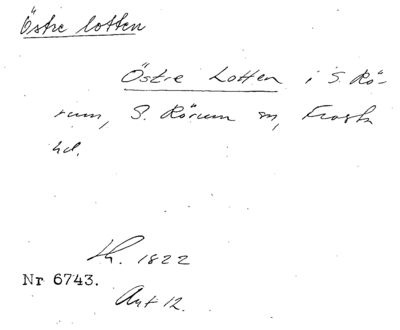 Östre lotten
Östre Lotten i S. Rö-
rum, S. Rörum sn, Frosta
hd.
Lh. 1822
Nr 6743.
Avt 12.